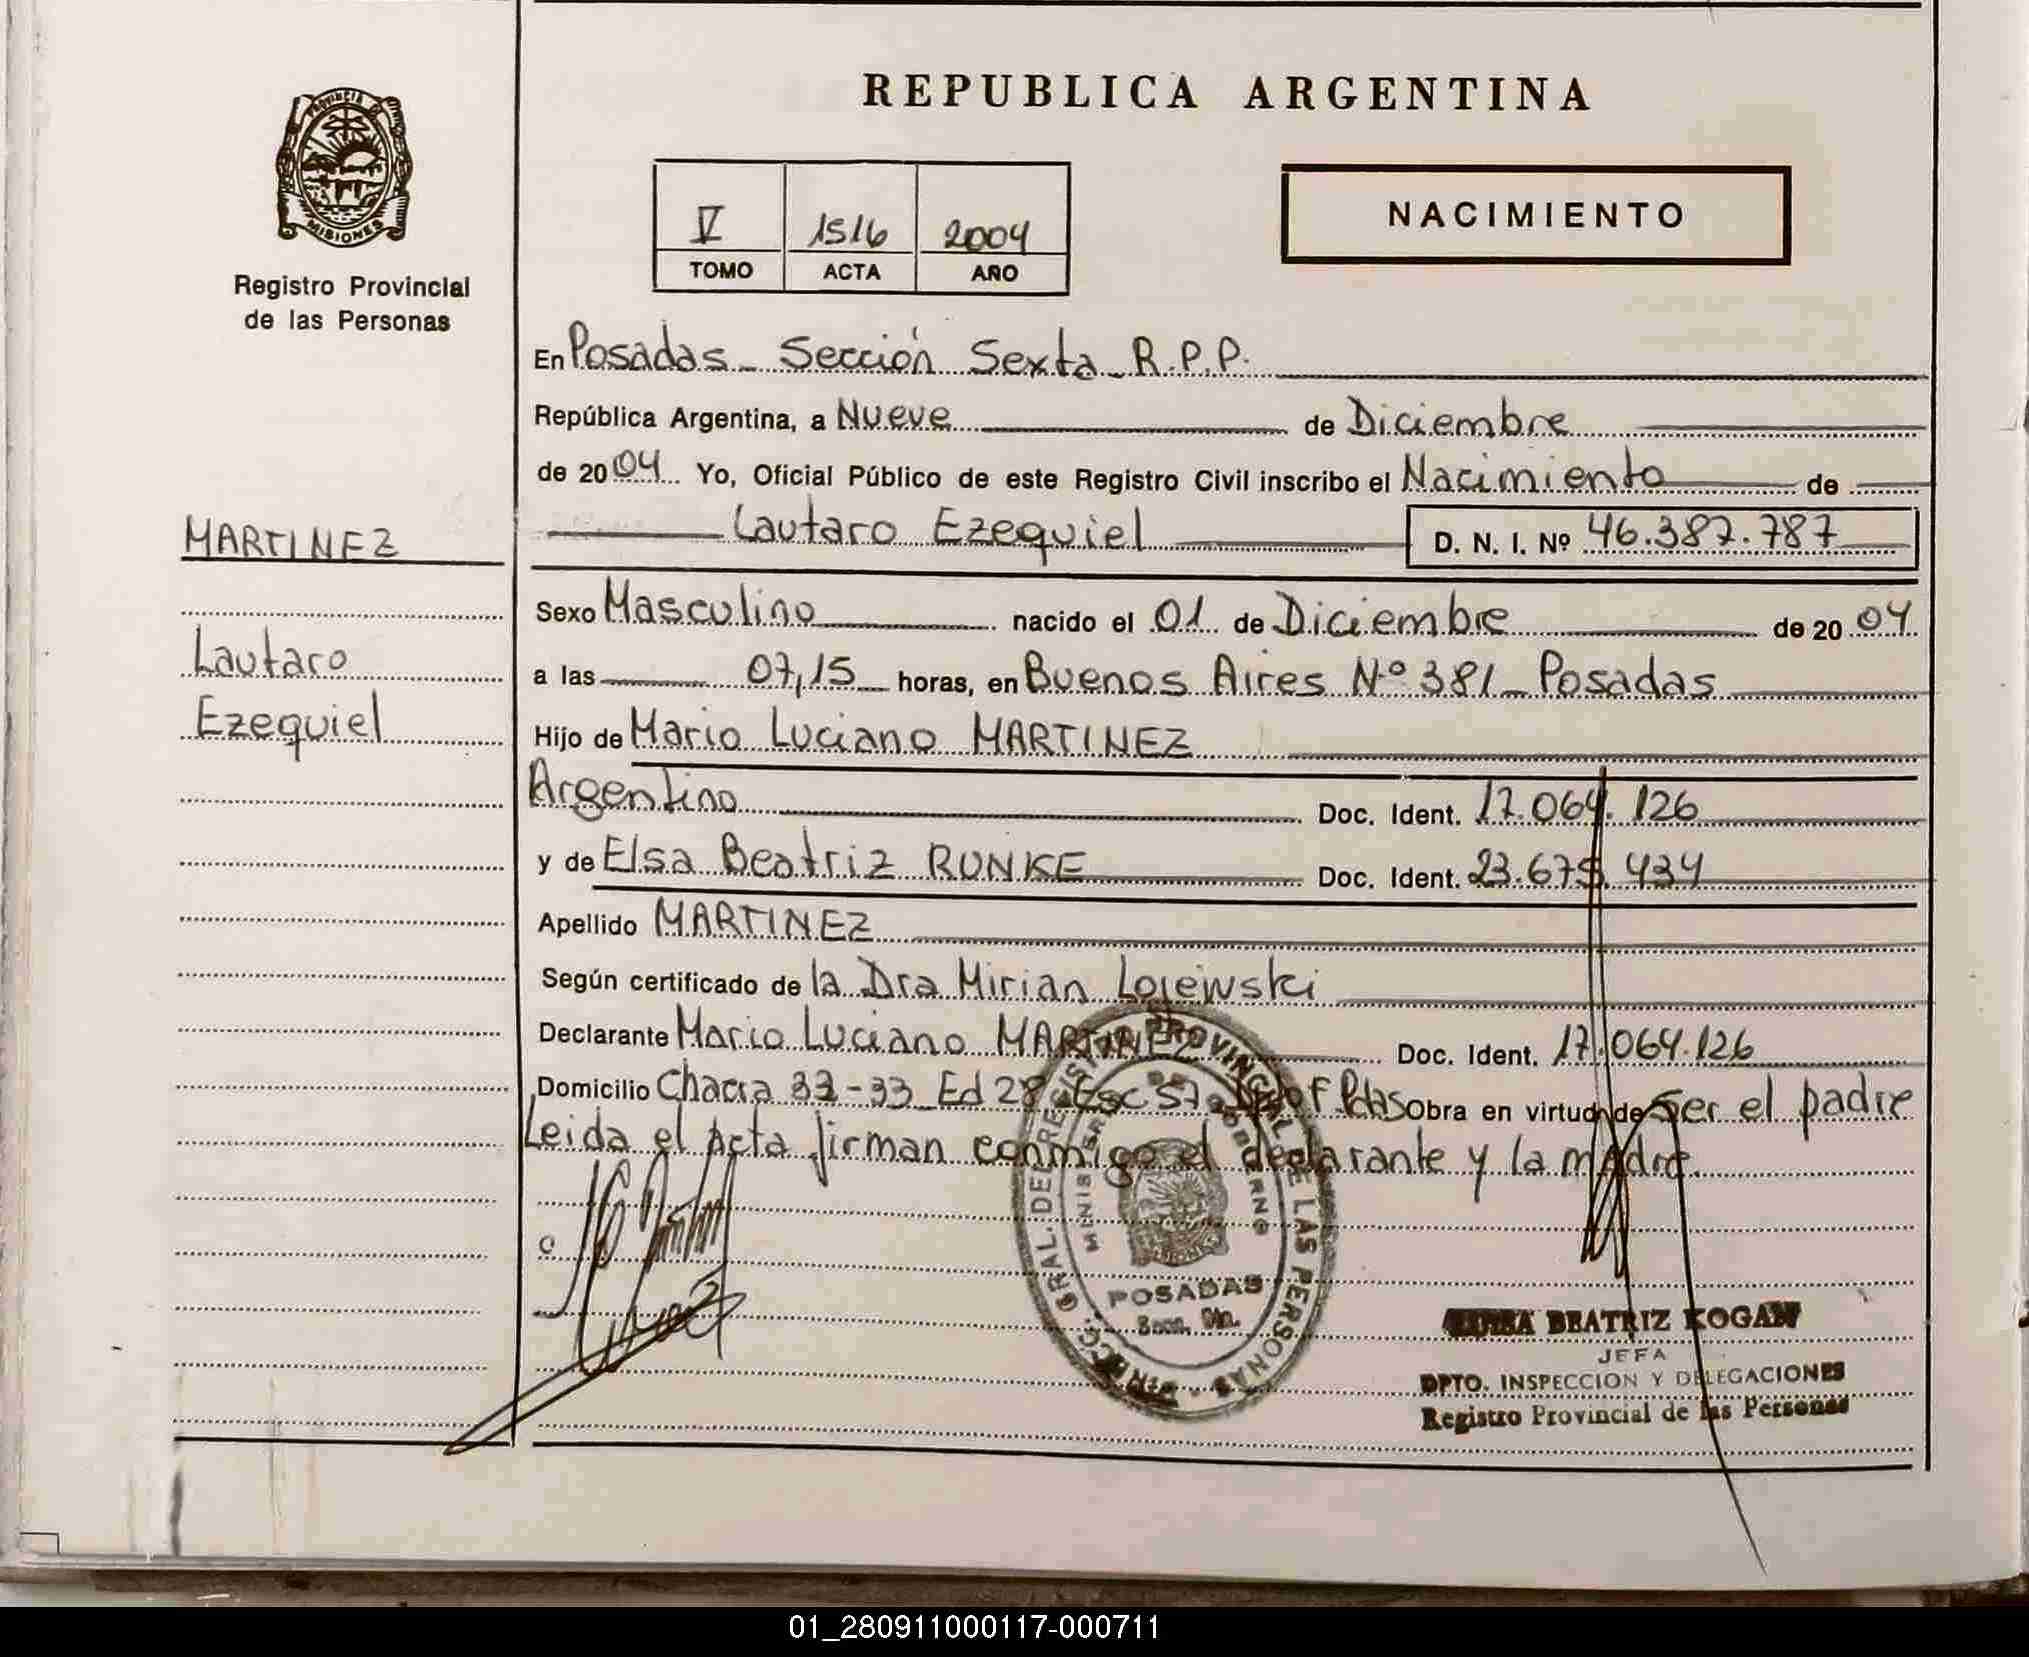 REPUBLICA ARGENTINA
PROVINCIA DE
MISIONES
Registro Provincial
de las Personas
V 1516 2004
TOMO ACTA AÑO
NACIMIENTO
En Posadas - Sección Sexta - R.P.P.
República Argentina, a Nueve de Diciembre
de 2004 Yo, Oficial Público de este Registro Civil inscribo el Nacimiento de
Lautaro Ezequiel D. N. I. Nº 46.387.787
MARTINEZ
Lautaro
Ezequiel
Sexo Masculino nacido el 01 de Diciembre de 2004
a las 07,15 horas, en Buenos Aires Nº 381 - Posadas
Hijo de Mario Luciano MARTINEZ
Argentino Doc. Ident. 17.064.126
y de Elsa Beatriz RUNKE Doc. Ident. 23.675.434
Apellido MARTINEZ
Según certificado de la Dra Mirian Lojewski
Declarante Mario Luciano MARTINEZ Doc. Ident. 17.064.126
Domicilio Chacra 32-33 Ed 28 Esc 57 Pdas Obra en virtud de Ser el padre
Leida el Acta firman conmigo el declarante y la madre.
GRAL. DEL REGISTRO PROVINCIAL DE LAS PERSONAS
MINISTERIO DE GOBIERNO
MISIONES
POSADAS
BEATRIZ KOGAN
JEFA
DPTO. INSPECCION Y DELEGACIONES
Registro Provincial de las Personas
01_280911000117-000711